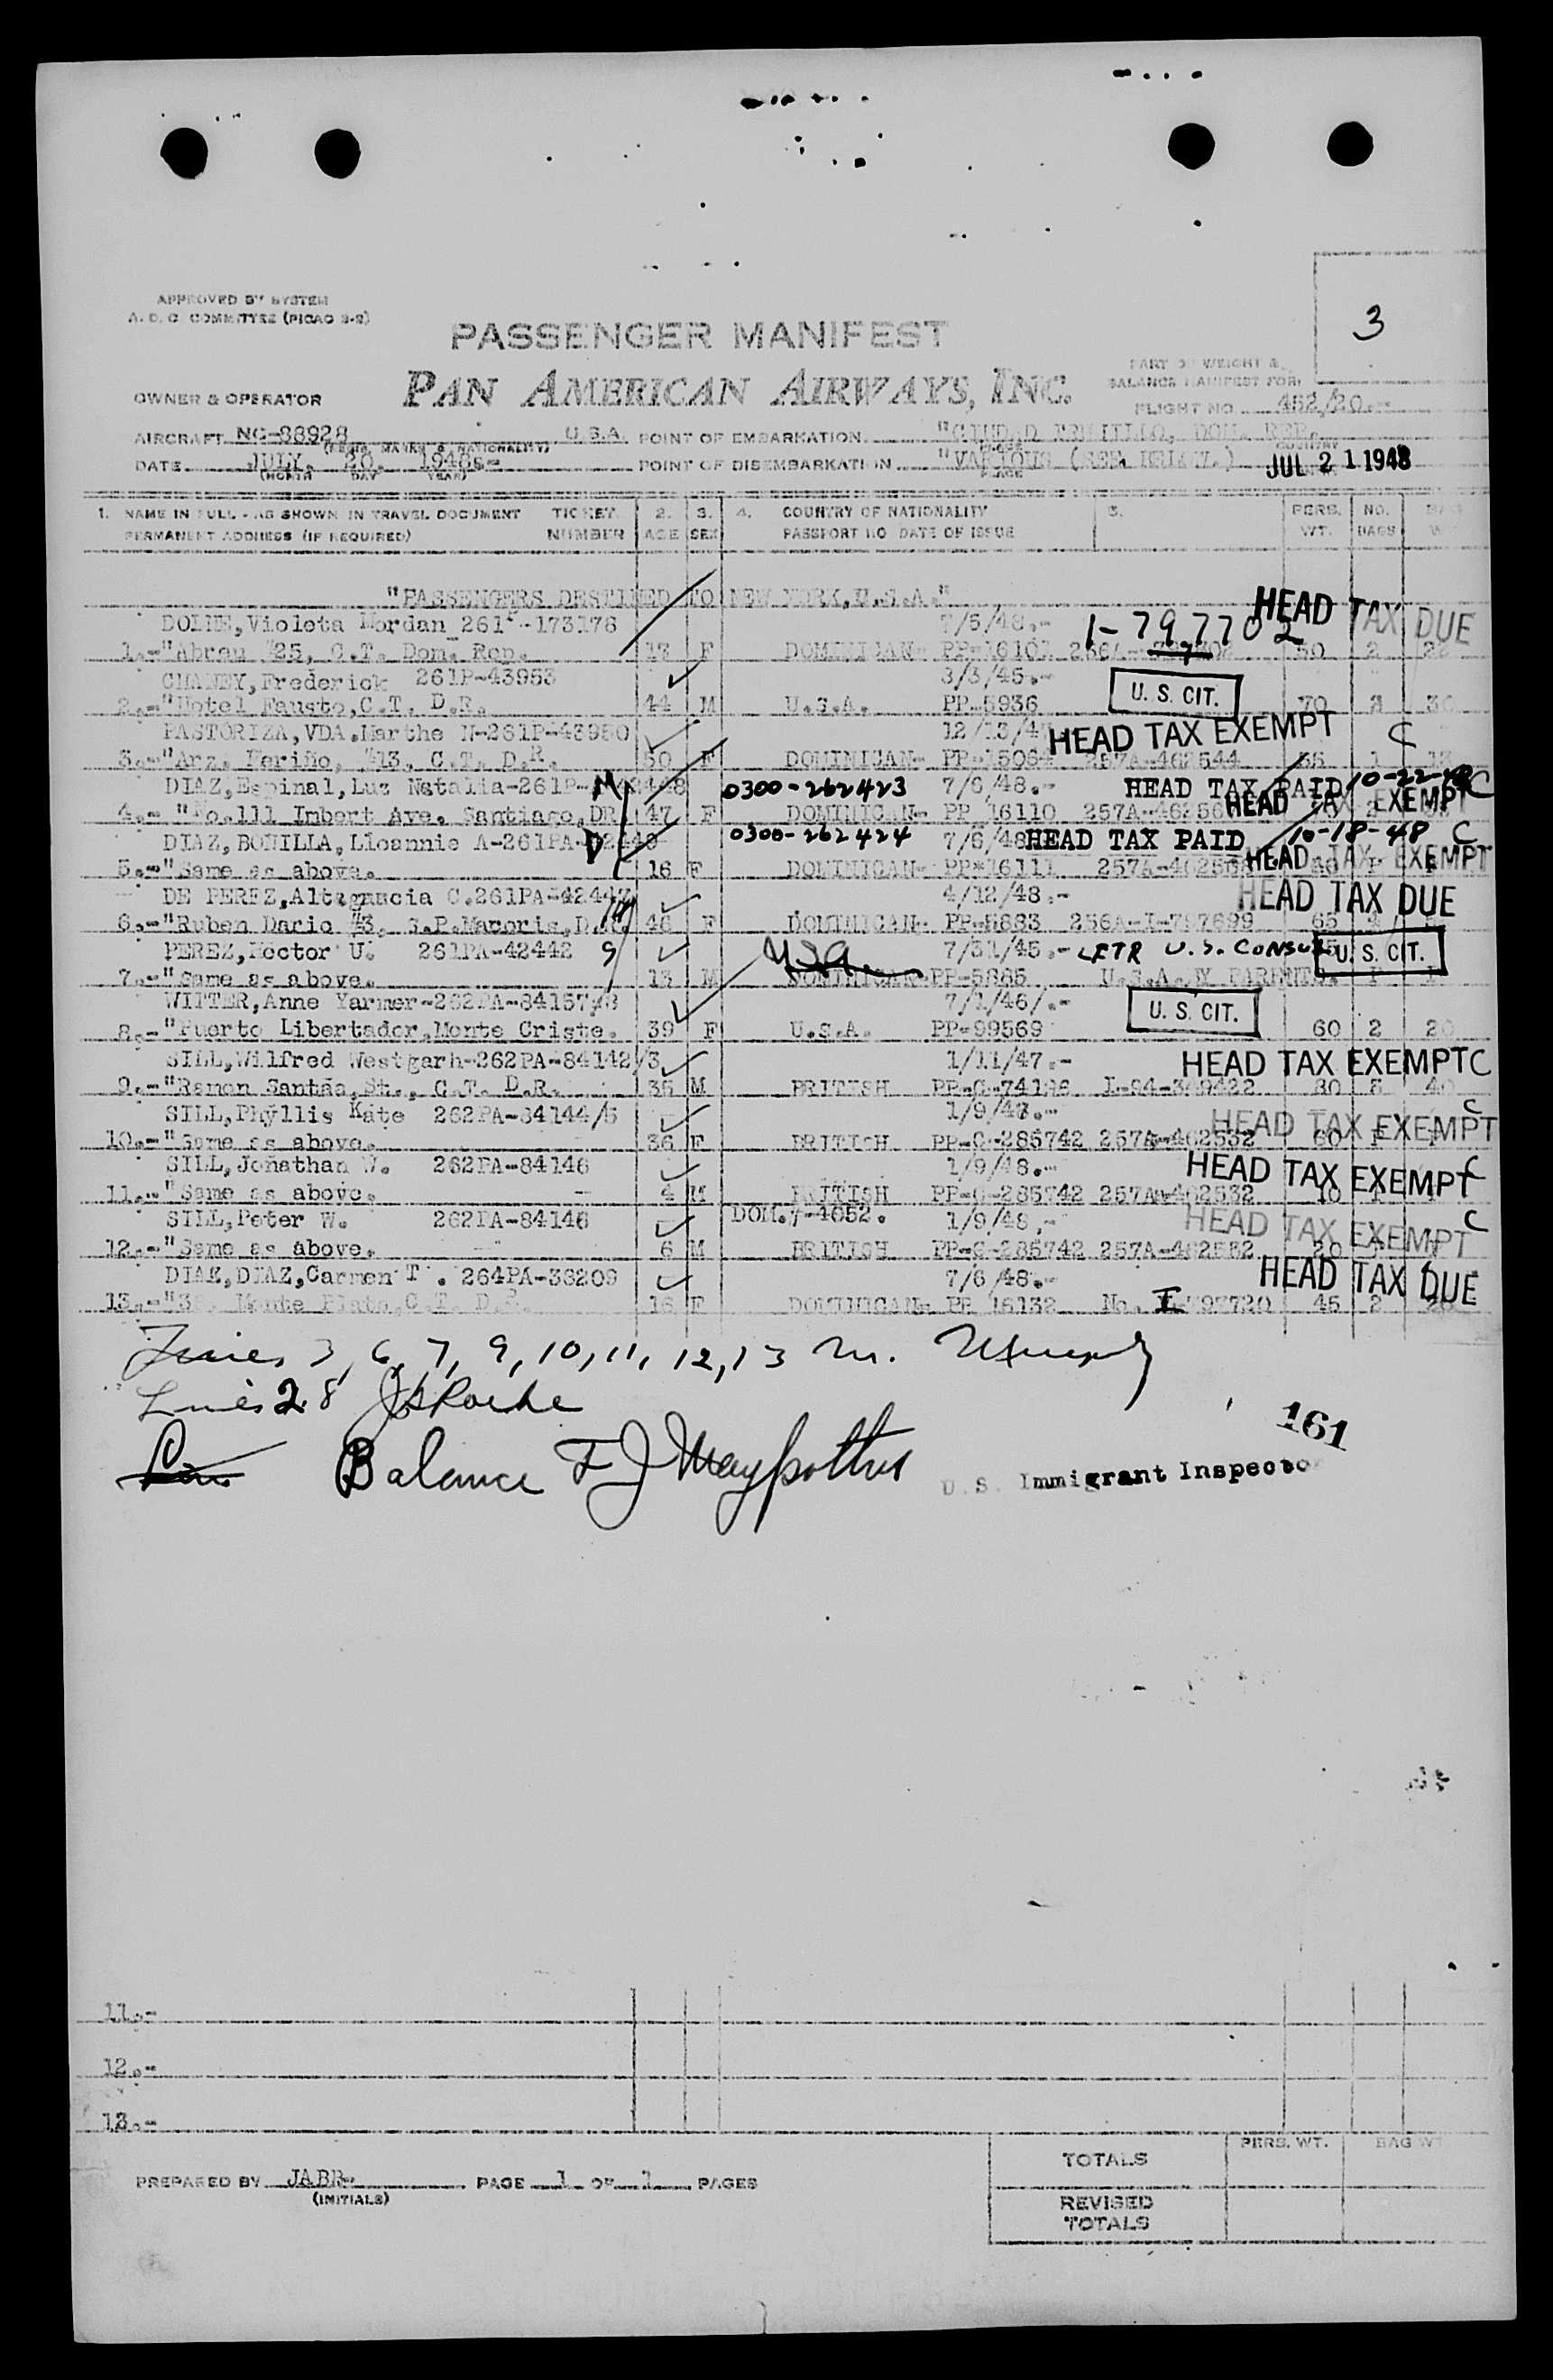 APPROVED BY SYSTEM
A. O. C. COMMITTEE (PICAO 2-2)
3
PASSENGER MANIFEST
PART OF WEIGHT &
BALANCE MANIFEST FOR:
OWNER & OPERATOR PAN AMERICAN AIRWAYS, INC.
FLIGHT NO. 452/20.-
AIRCRAFT NC-88928 U.S.A. POINT OF EMBARKATION "CIUDAD TRUJILLO, DOM. REP.
(REGIS. MARKS & NATIONALITY) COUNTRY
DATE JULY. 20. 1948.- POINT OF DISEMBARKATION "VARIOUS (SEE BELOW.) JUL 21 1948
(MONTH DAY YEAR) PLACE
1. NAME IN FULL - AS SHOWN IN TRAVEL DOCUMENT TICKET 2. 3. 4. COUNTRY OF NATIONALITY 5. PERS. NO. BAG
PERMANENT ADDRESS (IF REQUIRED) NUMBER AGE SEX PASSPORT NO DATE OF ISSUE WT. BAGS W
"PASSENGERS DESTINED TO NEW YORK, U.S.A."
Violeta Mordan 261 -173178 7/5/48.- 1-797702 HEAD TAX DUE
1.-"Abreu #25, C.T. Dom. Rep. 17 F DOMINICAN- PP-16101 256A- 50 2
CHANEY, Frederick 261P-43953 3/3/45.- U. S. CIT.
2.-"Hotel Fausto, C.T. D.R. 44 M U.S.A. PP-5936 70 3 30
PASTORIZA, VDA. Marthe N-261P-43950 12/13/4 HEAD TAX EXEMPT C
3.-"Arz. Meriño, #13, C.T. D.R. 50 F DOMINICAN- PP-15064 257A-462544 55 1
DIAZ, Espinal, Luz Natalia-261P- 2448 0300-262423 7/6/48.- HEAD TAX PAID 10-22-48 C
4.- "No.111 Imbert Ave. Santiago, DR 47 F DOMINICAN- PP 16110 257A-46256 HEAD TAX EXEMPT
DIAZ, BONILLA, Lioannie A-261PA- 2449 0300-262424 7/6/48 HEAD TAX PAID 10-18-48 C
5.-"Same as above. 16 F DOMINICAN- PP*16111 257A-46256 HEAD TAX EXEMPT
DE PEREZ, Altagracia C.261PA-42447 4/12/48.- HEAD TAX DUE
6.-"Ruben Dario #3, S.P.Macoris, D.R. 46 F DOMINICAN- PP-8883 256A-I-797699 65
PEREZ, Hector U. 261PA-42442 9 USA 7/31/45.- LETR U.S. CONSUL U. S. CIT.
7.-"Same as above. 13 M DOMINICAN-PP-5865 U.S.A. BY PARENTS.
WITTER, Anne Yarmer-262PA-84157/8 7/1/46/.- U. S. CIT.
8.-"Puerto Libertador, Monte Criste. 39 F U.S.A. PP-99569 60 2 20
SILL, Wilfred Westgarh-262PA-84142/3 1/11/47.- HEAD TAX EXEMPT C
9.-"Ramon Santas, St., C.T. D.R. 35 M BRITISH PP-C-74196 I-94-349422 80 5 40
SILL, Phyllis Kate 262PA-84144/5 1/9/48.- HEAD TAX EXEMPT C
10.-"Same as above. 36 F BRITISH PP-C-285742 257A-462532 60
SILL, Jonathan W. 262PA-84146 1/9/48.- HEAD TAX EXEMPT C
11.-"Same as above. 4 M BRITISH PP-C-285742 257A-462532 10
SILL, Peter W. 262PA-84146 DOM. 7-4052. 1/9/48.- HEAD TAX EXEMPT C
12.-"Same as above. 6 M BRITISH PP-C-285742 257A-462532 20
DIAZ, DIAZ, Carmen T. 264PA-38209 7/6/48.- HEAD TAX DUE
13.-"38, Monte Plata, C.T. D.R. 16 F DOMINICAN- PP 16132 No. I-797720 45 2 20
Lines 3, 6, 7, 9, 10, 11, 12, 13 M. Murphy
Lines 2 8 J Roche
Balance F J Maypother
161
U. S. Immigrant Inspector
11.-
12.-
13.-
PERS. WT. BAG WT
TOTALS
PREPARED BY JABR- PAGE 1 OF 1 PAGES
(INITIALS)
REVISED
TOTALS